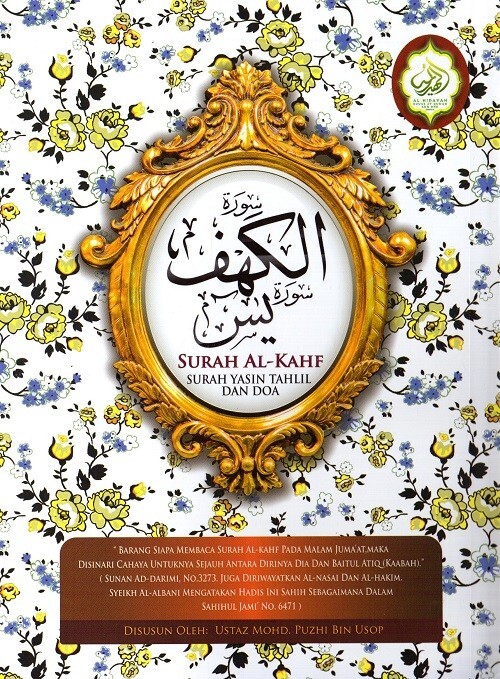 AL HIDAYAH
HOUSE OF QURAN
سورة
الكهف
سورة
يس
SURAH AL-KAHF
SURAH YASIN TAHLIL
DAN DOA
" BARANG SIAPA MEMBACA SURAH AL-KAHF PADA MALAM JUMA'AT,MAKA
DISINARI CAHAYA UNTUKNYA SEJAUH ANTARA DIRINYA DIA DAN BAITUL ATIQ (KAABAH)."
( SUNAN AD-DARIMI, NO.3273. JUGA DIRIWAYATKAN AL-NASAI DAN AL-HAKIM.
SYEIKH AL-ALBANI MENGATAKAN HADIS INI SAHIH SEBAGAIMANA DALAM
SAHIHUL JAMI' NO. 6471 )
DISUSUN OLEH: USTAZ MOHD. PUZHI BIN USOP